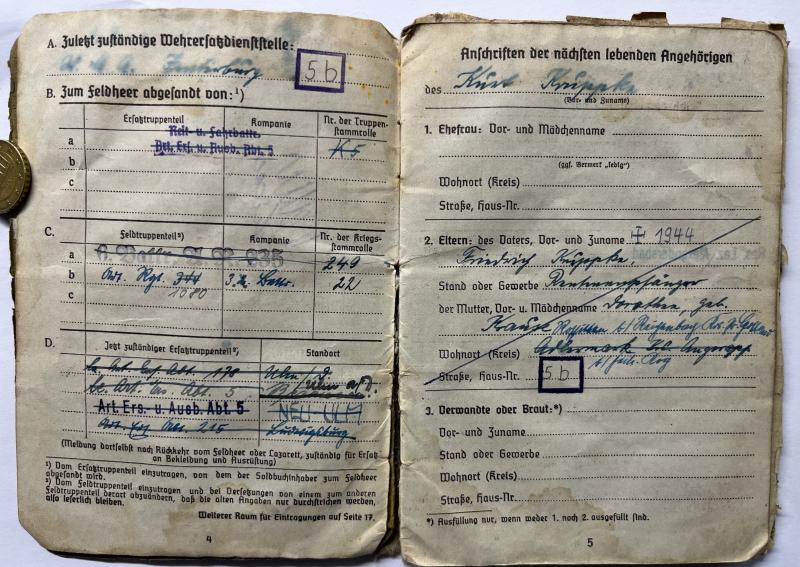 A. Zuletzt zuständige Wehrersatzdienststelle:
5b
B. Zum Feldheer abgesandt von:¹)
Ersatztruppenteil Kompanie Nr. der Truppenstammrolle
a Reit- u. Fahrbattr. K5
Art. Ers. u. Ausb. Abt. 5
b
c
C. Feldtruppenteil²) Kompanie Nr. der Kriegsstammrolle
a 6. Battr. A. R. 235 249
b Art. Rgt. 344 3. Battr. 22
1080
c
D. Jetzt zuständiger Ersatztruppenteil²) Standort
le. Art. Ers. Abt. 178 Ulm / D.
le. Art. Ers. Abt. 5 Ulm a/D.
Art. Ers.- u. Ausb. Abt. 5 NEU-ULM
Art. Ers. Abt. 215 Ludwigsburg
(Meldung dortselbst nach Rückkehr vom Feldheer oder Lazarett, zuständig für Ersatz
an Bekleidung und Ausrüstung)
¹) Vom Ersatztruppenteil einzutragen, von dem der Soldbuchinhaber zum Feldheer
abgesandt wird.
²) Vom Feldtruppenteil einzutragen und bei Versetzungen von einem zum anderen
Feldtruppenteil derart abzuändern, daß die alten Angaben nur durchstrichen werden,
also leserlich bleiben.
Weiterer Raum für Eintragungen auf Seite 17.
4
Anschriften der nächsten lebenden Angehörigen
des Kurt Kruppke
(Vor- und Zuname)
1. Ehefrau: Vor- und Mädchenname
(ggf. Vermerk „ledig")
Wohnort (Kreis)
Straße, Haus-Nr.
2. Eltern: des Vaters, Vor- und Zuname 1944
Friedrich Kruppke
Stand oder Gewerbe Rentenempfänger
der Mutter, Vor- u. Mädchenname Dorothea, geb.
Kaust
Wohnort (Kreis)
Straße, Haus-Nr. 5b
3. Verwandte oder Braut:*)
Vor- und Zuname
Stand oder Gewerbe
Wohnort (Kreis)
Straße, Haus-Nr.
*) Ausfüllung nur, wenn weder 1. noch 2. ausgefüllt sind.
5